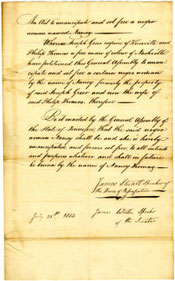 An Act to emancipate and set free a negro
woman named Nancy.
Whereas Joseph Greer esquire of Knoxville and
Philip Thomas a free man of colour of Nashville
have petitioned this General Assembly to eman-
cipate and set free a certain negro woman
by the name of Nancy formerly the property
of said Joseph Greer and now the wife of
said Philip Thomas therefore
Be it enacted by the General Assembly of
the State of Tennessee that the said negro
woman Nancy shall be and she is hereby
emancipated and set free to all intents
and purposes whatever and shall in future
be known by the name of Nancy Thomas.
James Stuart Speaker of
the House of Representatives
July 31st 1804
James White Speaker
of the Senate